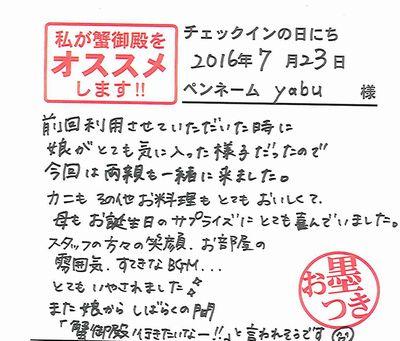 私が蟹御殿を
オススメ
します!!
チェックインの日にち
2016年7月23日
ペンネーム yabu 様
前回利用させていただいた時に
娘がとても気に入った様子だったので
今回は両親も一緒に来ました。
カニも その他お料理も とても おいしくて、
母も お誕生日のサプライズに とても喜んでいました。
スタッフの方々の笑顔、お部屋の
雰囲気、すてきなBGM...
とてもいやされました
また娘から しばらくの間
「蟹御殿行きたいなー!!」と言われそうです
お墨つき